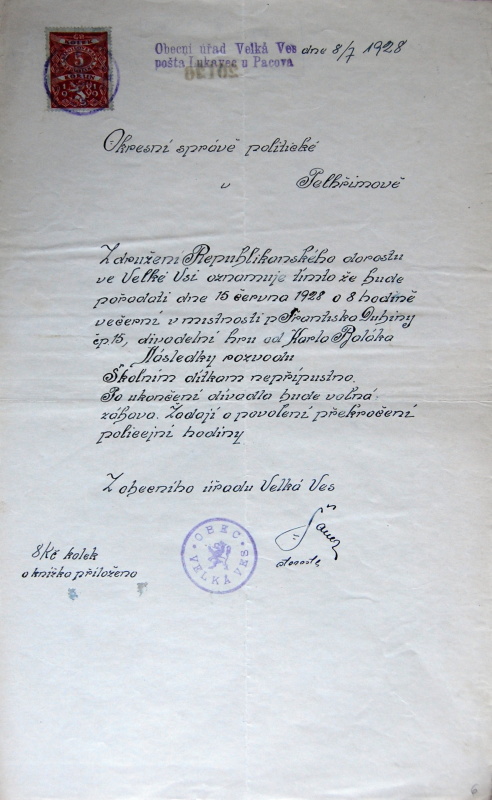 5
Obecní úřad Velká Ves dne 8/7 1928
pošta Lukavec u Pacova
20136
Okresní správě politické
v Pelhřimově
Združení Republikanského dorostu
ve Velké Vsi oznamuje tímto že bude
pořádati dne 15 června 1928 o 8 hodině
večerní v místnosti p Františka Dubiny
čp 15, divadelní hru od Karla Poláka
Následky rozvodu
Školním dítkám nepřípustno.
Po ukončení divadla bude volná
zábava. Žádají o povolení překročení
policejní hodiny
Z obecního úřadu Velká Ves
OBEC
VELKÁ VES
8Kč kolek
a knížka přiloženo
6